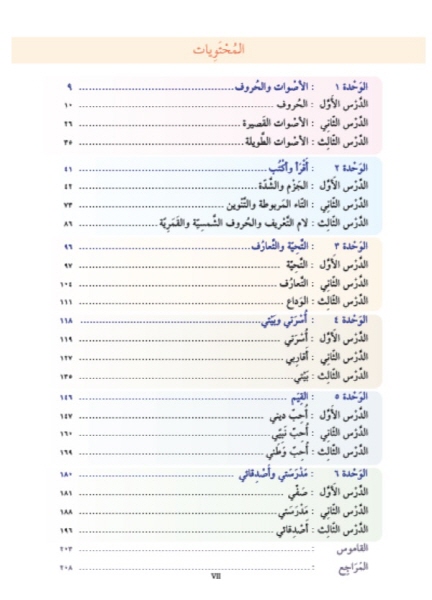 المُحْتَوِيات
الوَحْدة ١ : الأصْوات والحُروف ........................................ ٩
الدَّرْس الأَوَّل : الحُروف ........................................ ١٠
الدَّرْس الثّاني : الأصْوات القَصيرة ........................................ ٢٦
الدَّرْس الثّالِث : الأصْوات الطَّويلة ........................................ ٣٥
الوَحْدة ٢ : أَقْرَأ وأكْتُب ........................................ ٤١
الدَّرْس الأَوَّل : الجَزْم والشَّدّة ........................................ ٤٢
الدَّرْس الثّاني : التّاء المَربوطة والتَّنْوين ........................................ ٧٣
الدَّرْس الثّالِث : لام التَّعْريف والحُروف الشَّمْسِيّة والقَمَرِيّة ........................................ ٨٦
الوَحْدة ٣ : التَّحِيّة والتَّعارُف ........................................ ٩٦
الدَّرْس الأَوَّل : التَّحِيّة ........................................ ٩٧
الدَّرْس الثّاني : التَّعارُف ........................................ ١٠٤
الدَّرْس الثّالِث : الوَداع ........................................ ١١١
الوَحْدة ٤ : أُسْرَتي وبَيْتي ........................................ ١١٨
الدَّرْس الأَوَّل : أُسْرَتي ........................................ ١١٩
الدَّرْس الثّاني : أَقارِبي ........................................ ١٢٧
الدَّرْس الثّالِث : بَيْتي ........................................ ١٣٥
الوَحْدة ٥ : القِيَم ........................................ ١٤٦
الدَّرْس الأَوَّل : أُحِبّ ديني ........................................ ١٤٧
الدَّرْس الثّاني : أُحِبّ نَبِيّي ........................................ ١٦٠
الدَّرْس الثّالِث : أُحِبّ وَطَني ........................................ ١٦٩
الوَحْدة ٦ : مَدْرَسَتي وأَصْدِقائي ........................................ ١٨٠
الدَّرْس الأَوَّل : صَفّي ........................................ ١٨١
الدَّرْس الثّاني : مَدْرَسَتي ........................................ ١٨٨
الدَّرْس الثّالِث : أَصْدِقائي ........................................ ١٩٦
القاموس : ........................................ ٢٠٣
المَرَاجِع : ........................................ ٢٠٨
VII